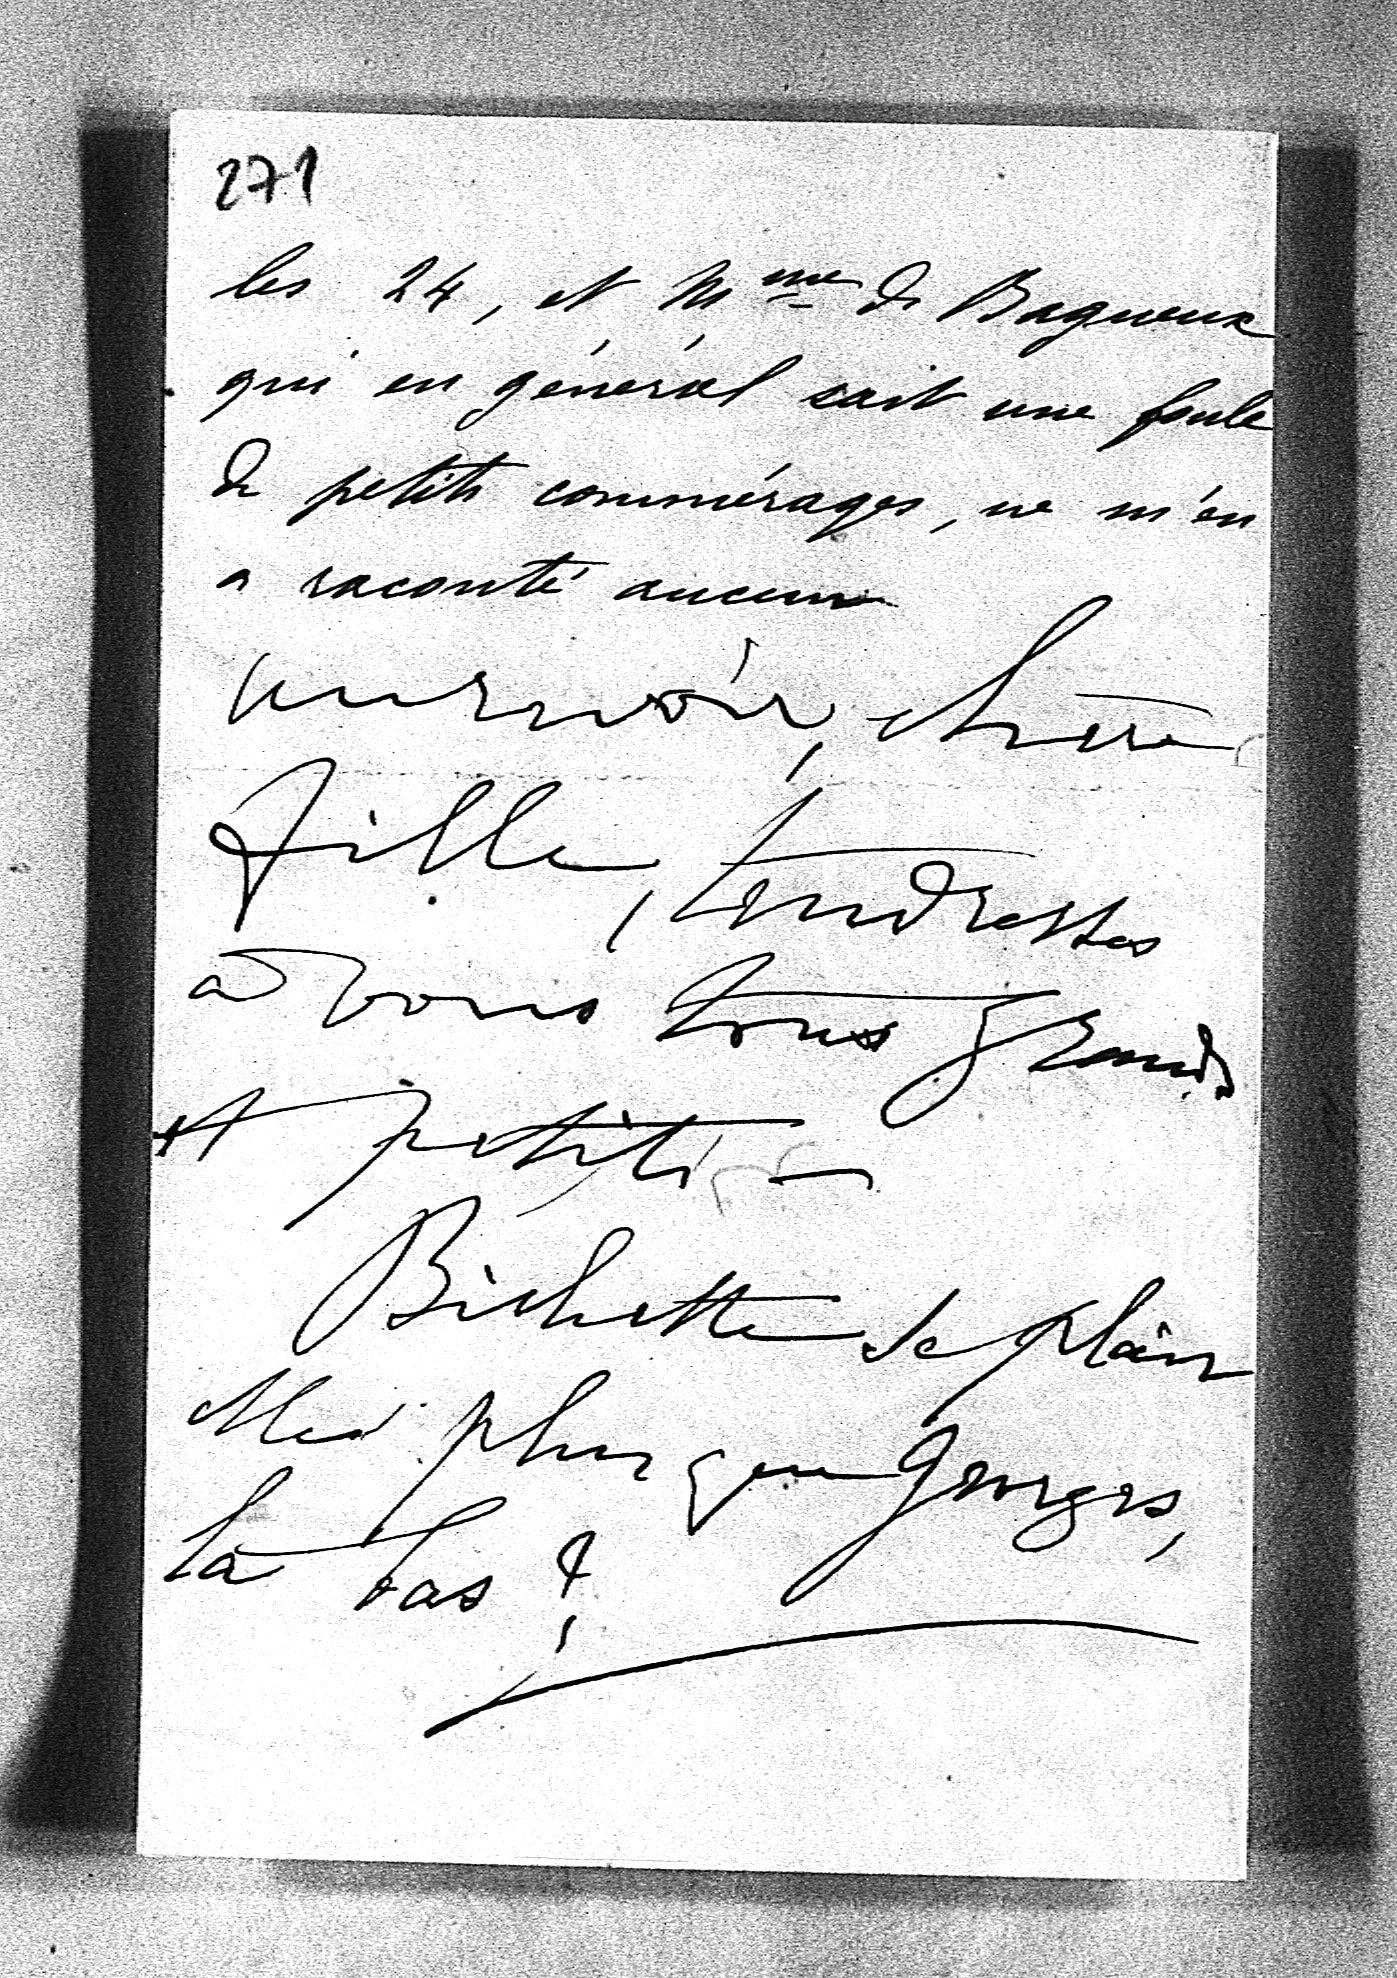 271
les 24, et Mme de Bagneux
qui en général sait une foule
de petits commérages, ne m'en
a raconté aucun
aurevoir, chère
fille, tendresses
à vous tous grands
et petits —
Bichette se plair
elle plus que Georges,
là bas ?